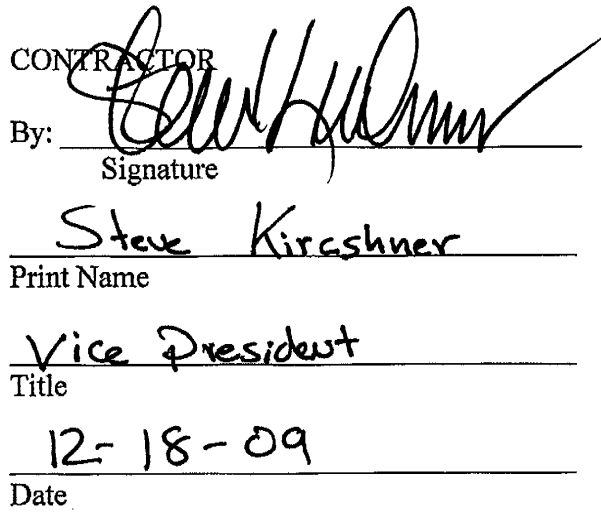 CONTRACTOR
By:
Signature
Steve Kircshner
Print Name
Vice President
Title
12-18-09
Date